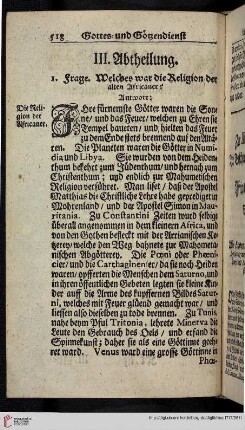 518 Gottes- und Götzendienst
III. Abtheilung.
1. Frage. Welches war die Religion der
alten Africaner?
Antwort:
Die Reli-
gion der
Africaner.
Ihre fürnemste Götter waren die Son-
ne/ und das Feuer/ welchen zu Ehren sie
Tempel baueten/ und hielten das Feuer
zu dem Ende stets brennend auf den Altä-
ren. Die Planeten waren die Götter in Numi-
dia und Libya. Sie wurden von dem Heiden-
thum bekehrt zum Jüdenthum/ und hernach zum
Christenthum; und endlich zur Mahometischen
Religion verführet. Man lieset/ daß der Apostel
Matthias die Christliche Lehre habe geprediget in
Mohrenland/ und der Apostel Simon in Mau-
ritania. Zu Constantini Zeiten wurd selbige
überall angenommen in dem kleinern Africa, und
von den Gothen befleckt mit der Arrianischen Ke-
tzerey/ welche den Weg bahnete zur Mahometa-
nischen Abgötterey. Die Pœni oder Phœni-
cier/ und die Carthaginenser/ da sie noch Heiden
waren/ opfferten die Menschen dem Saturno, und
in ihren öffentlichen Gebeten legten sie kleine Kin-
der auf die Arme des kupffernen Bildes Satur-
ni, welches mit Feuer glüend gemacht war/ und
liessen also dieselben zu tode brennen. Zu Tunis
nahe beym Pful Tritonia, lehrete Minerva die
Leute den Gebrauch des Oels/ und erfand die
Spinnekunst; daher sie als eine Göttinne geeh-
ret ward. Venus ward eine grosse Göttinne in
Phœ-